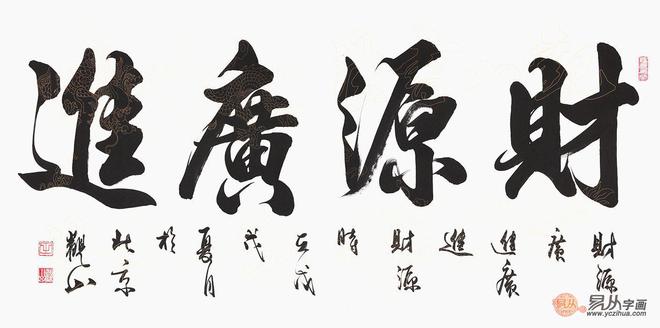 財源廣進
財源
廣
進廣
進
財源
時
在戊
戌
夏月
於
北京
觀山
易从字画
www.yczihua.com